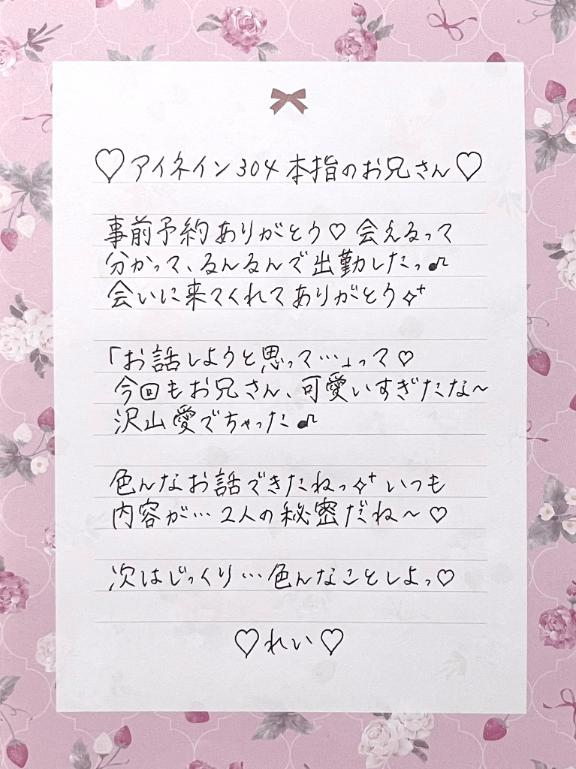 ♡アイネイン304 本指のお兄さん♡
事前予約ありがとう♡ 会えるって
分かって、るんるんで出勤したっ♪
会いに来てくれてありがとう✧⁺
「お話しようと思って…」って♡
今回もお兄さん、可愛いすぎたな〜
沢山愛でちゃった♪
色んなお話できたねっ✧⁺ いつも
内容が… 2人の秘密だね〜♡
次はじっくり…色んなことしよっ♡
♡れい♡